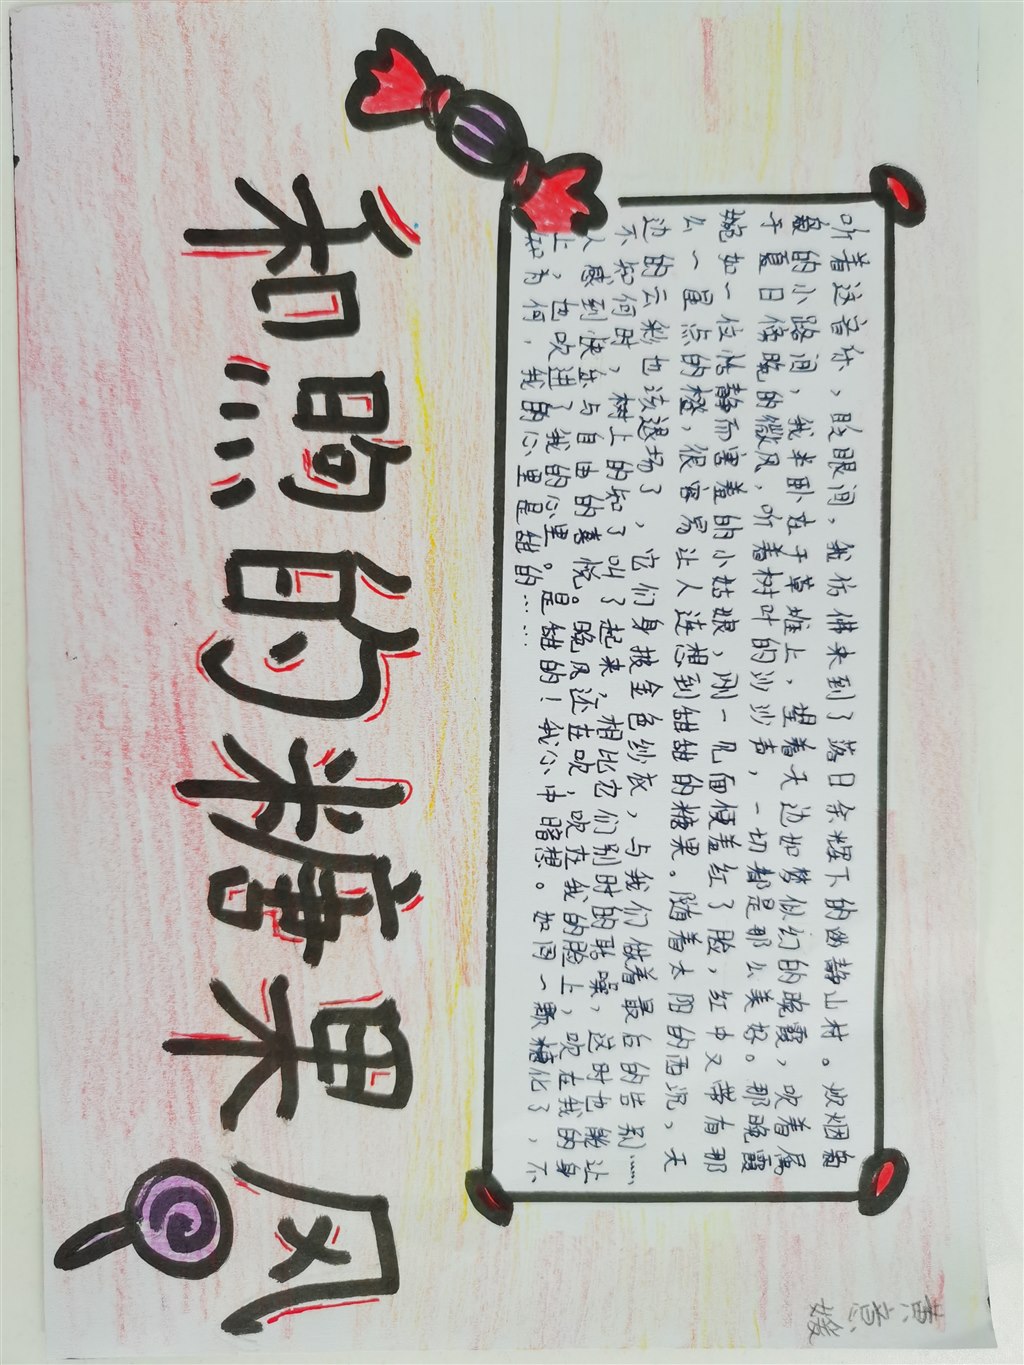 黄意媛
听着这音乐，眨眼间，我仿佛来到了落日余辉下的幽静山村。炊烟袅
袅的小路间，我半卧在于草堆上，望着天边如梦似幻的晚霞，吹着属
于夏日傍晚的微风，听着树叶的沙沙声，一切都是那么美好。那晚霞
婉如一位恬静而害羞的小姑娘，刚一见面便羞红了脸，红中又带有那
么一星点的橙，很容易让人连想到甜甜的糖果。随着太阳的西沉，天
边的云彩也该退场了，它们身披金色纱衣，与我们做着最后的告别……
不知何时，树上的知了叫了起来，相比它们别时的聒噪，这时也能让
人感到快乐与自由的喜悦。晚风还在吹，吹在我的脸上，吹在我的身
上，也吹进了我的心里。是甜的！我心中暗想。如同一颗糖化了，不
知为何，我的心里是甜的……
和煦的糖果风